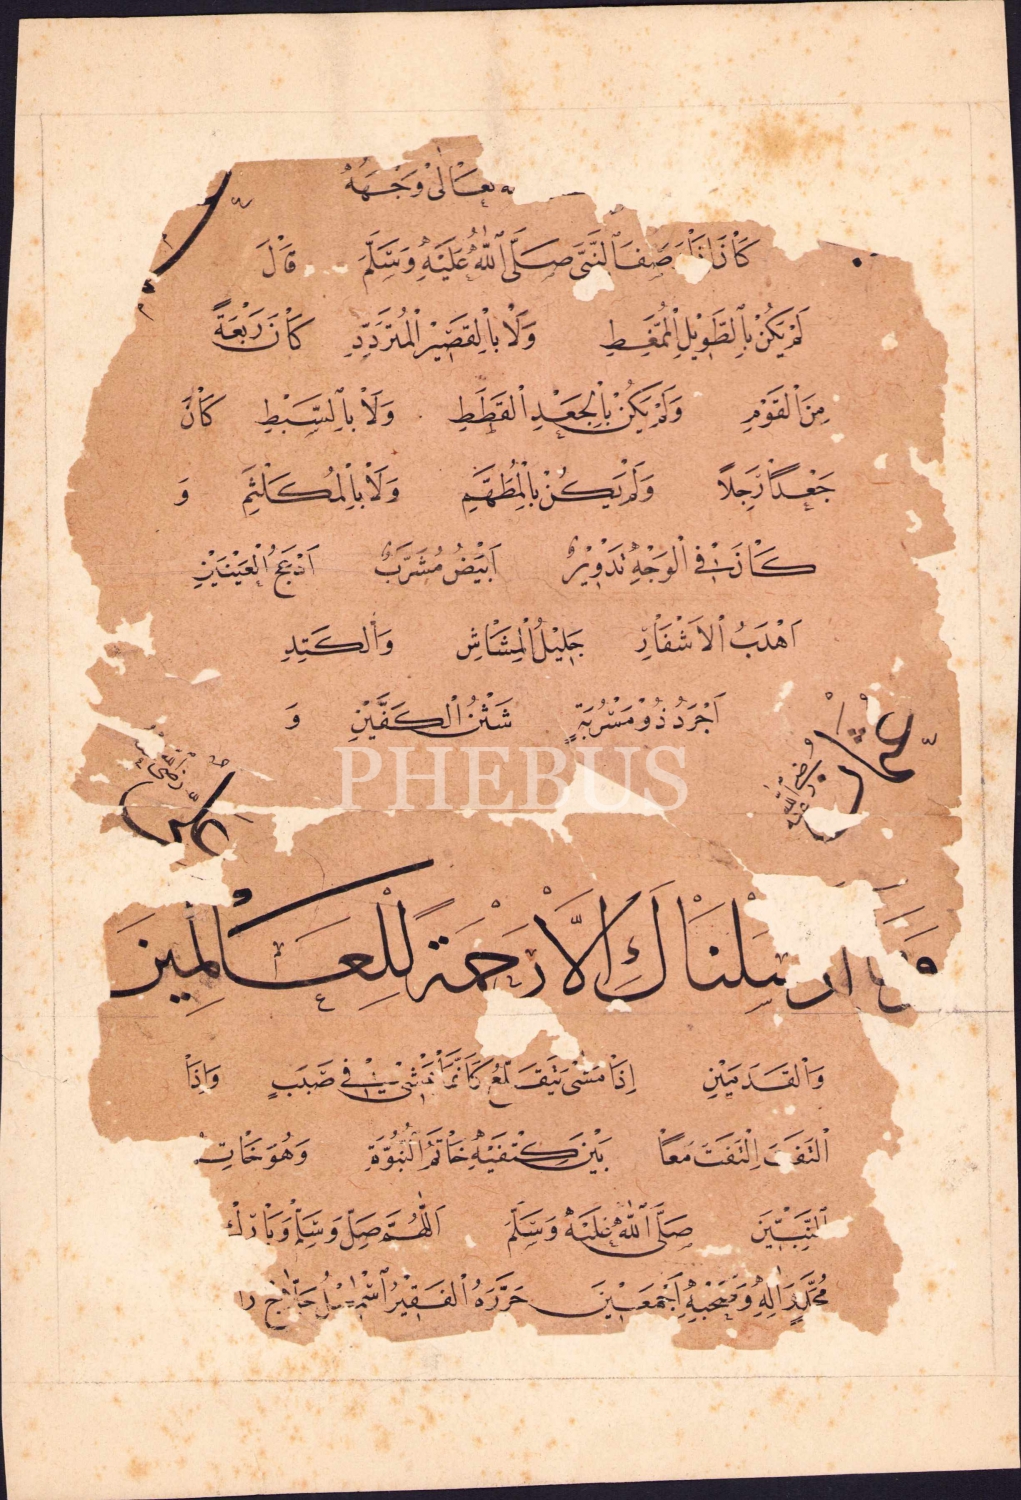 تعالى وجهه
كان اذا وصف النبي صلى الله عليه وسلم قال
لَمْ يَكُنْ بِالطَّوِيْلِ الْمُمَّغِطِ وَلَا بِالْقَصِيْرِ الْمُتَرَدِّدِ كَانَ رَبْعَةً
مِنَ الْقَوْمِ وَلَمْ يَكُنْ بِالْجَعْدِ الْقَطَطِ وَلَا بِالسَّبِطِ كَانَ
جَعْدًا رَجِلًا وَلَمْ يَكُنْ بِالْمُطَهَّمِ وَلَا بِالْمُكَلْثَمِ وَ
كَانَ فِي الْوَجْهِ تَدْوِيْرٌ اَبْيَضُ مُشَرَّبٌ اَدْعَجُ الْعَيْنَيْنِ
اَهْدَبُ الْاَشْفَارِ جَلِيْلُ الْمُشَاشِ وَالْكَتِدِ
اَجْرَدُ ذُوْ مَسْرُبَةٍ شَثْنُ الْكَفَّيْنِ وَ
عثمان رضي الله عنه
علي رضي الله
PHEBUS
وما ارسلناك الا رحمة للعالمين
وَالْقَدَمَيْنِ اِذَا مَشٰى يَتَقَلَّعُ كَاَنَّمَا يَمْشِيْ فِيْ صَبَبٍ وَاِذَا
الْتَفَتَ اِلْتَفَتَ مَعًا بَيْنَ كَتِفَيْهِ خَاتَمُ النُّبُوَّةِ وَهُوَ خَاتَمُ
النَّبِيّيْنَ صَلَّى اللّٰهُ عَلَيْهِ وَسَلَّمَ اَللّٰهُمَّ صَلِّ وَسَلِّمْ وَبَارِكْ
مُحَمَّدٍ وَاٰلِهِ وَصَحْبِهِ اَجْمَعِيْنَ حَرَّرَهُ الْفَقِيْرُ